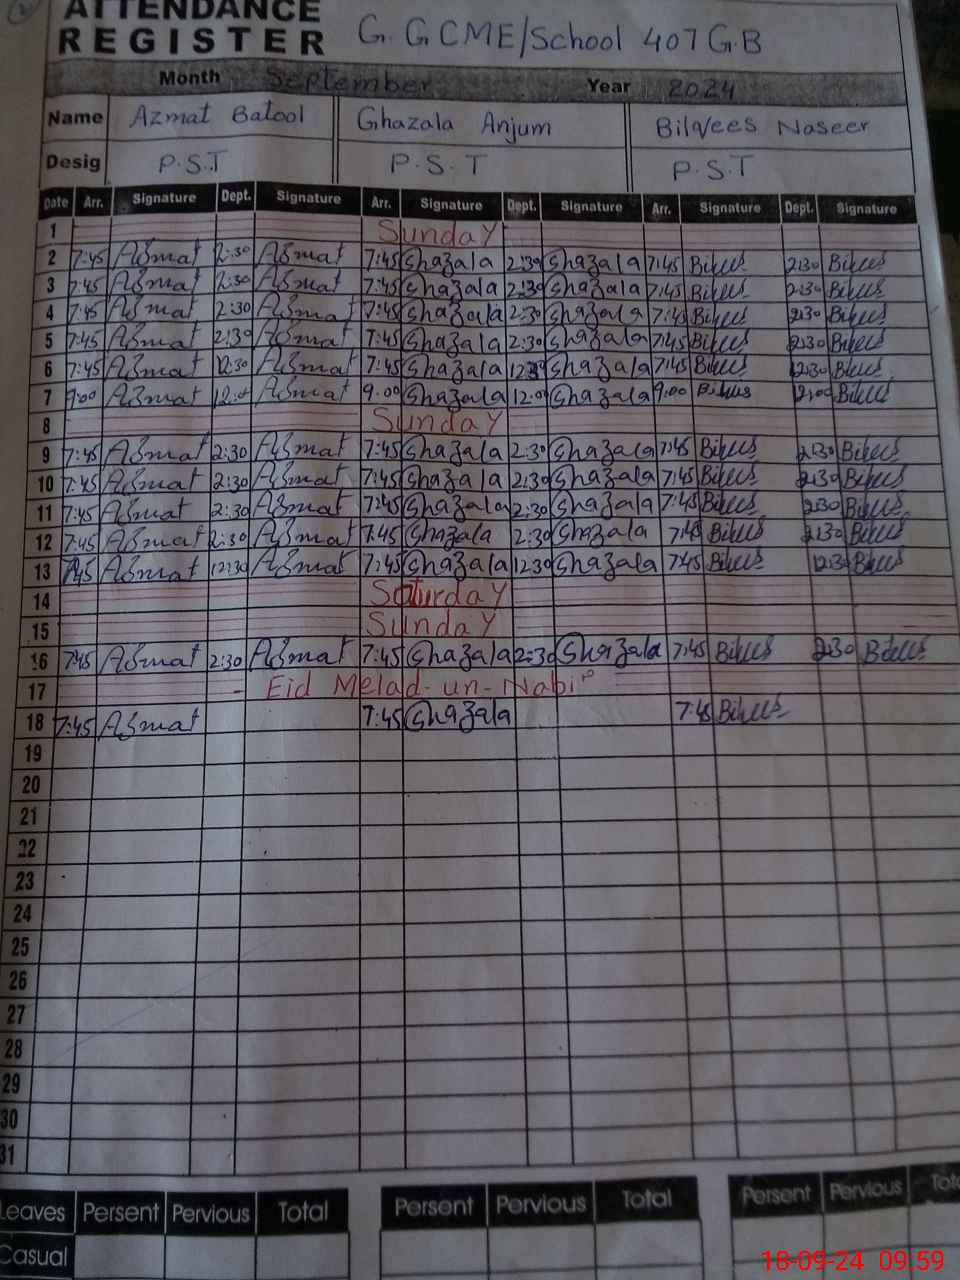 ATTENDANCE
REGISTER G.GCME/School 407 G.B
Month September Year 2024
Name Azmat Batool Ghazala Anjum Bilqees Naseer
Desig P.S.T P.S.T P.S.T
Date Arr. Signature Dept. Signature Arr. Signature Dept. Signature Arr. Signature Dept. Signature
1 Sunday
2 7:45 Azmat 2:30 Azmat 7:45 Ghazala 2:30 Ghazala 7:45 Bilees 2:30 Bilees
3 7:45 Azmat 2:30 Azmat 7:45 Ghazala 2:30 Ghazala 7:45 Bilees 2:30 Bilees
4 7:45 Azmat 2:30 Azmat 7:45 Ghazala 2:30 Ghazala 7:45 Bilees 2:30 Bilees
5 7:45 Azmat 2:30 Azmat 7:45 Ghazala 2:30 Ghazala 7:45 Bilees 2:30 Bilees
6 7:45 Azmat 12:30 Azmat 7:45 Ghazala 12:30 Ghazala 7:45 Bilees 12:30 Bilees
7 9:00 Azmat 12:00 Azmat 9:00 Ghazala 12:00 Ghazala 9:00 Bilees 12:00 Bilees
8 Sunday
9 7:45 Azmat 2:30 Azmat 7:45 Ghazala 2:30 Ghazala 7:45 Bilees 2:30 Bilees
10 7:45 Azmat 2:30 Azmat 7:45 Ghazala 2:30 Ghazala 7:45 Bilees 2:30 Bilees
11 7:45 Azmat 2:30 Azmat 7:45 Ghazala 2:30 Ghazala 7:45 Bilees 2:30 Bilees
12 7:45 Azmat 2:30 Azmat 7:45 Ghazala 2:30 Ghazala 7:45 Bilees 2:30 Bilees
13 7:45 Azmat 12:30 Azmat 7:45 Ghazala 12:30 Ghazala 7:45 Bilees 12:30 Bilees
14 Saturday
15 Sunday
16 7:45 Azmat 2:30 Azmat 7:45 Ghazala 2:30 Ghazala 7:45 Bilees 2:30 Bilees
17 - Eid Melad-un-Nabi
18 7:45 Azmat 7:45 Ghazala 7:45 Bilees
19
20
21
22
23
24
25
26
27
28
29
30
31
Leaves Persent Pervious Total Persent Pervious Total Persent Pervious
Casual
18-09-24 09:59